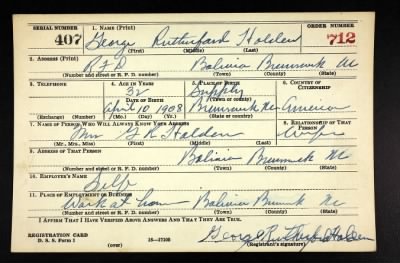 SERIAL NUMBER 1. NAME (Print) ORDER NUMBER
407 George Rutherford Holden 712
(First) (Middle) (Last)
2. ADDRESS (Print)
RFD Bolivia Brunswick NC
(Number and street or R. F. D. number) (Town) (County) (State)
3. TELEPHONE 4. AGE IN YEARS 5. PLACE OF BIRTH 6. COUNTRY OF CITIZENSHIP
32 Supply
DATE OF BIRTH (Town or county)
April 10 1908 Brunswick NC America
(Exchange) (Number) (Mo.) (Day) (Yr.) (State or country)
7. NAME OF PERSON WHO WILL ALWAYS KNOW YOUR ADDRESS 8. RELATIONSHIP OF THAT PERSON
Mrs G R Holden Wife
(Mr., Mrs., Miss) (First) (Middle) (Last)
9. ADDRESS OF THAT PERSON
Bolivia Brunswick NC
(Number and street or R. F. D. number) (Town) (County) (State)
10. EMPLOYER'S NAME
Self
11. PLACE OF EMPLOYMENT OR BUSINESS
Work at home Bolivia NC
(Number and street or R. F. D. number) (Town) (County) (State)
I AFFIRM THAT I HAVE VERIFIED ABOVE ANSWERS AND THAT THEY ARE TRUE.
George Rutherford Holden
REGISTRATION CARD
D. S. S. Form 1 (over) 16—17105 (Registrant's signature)